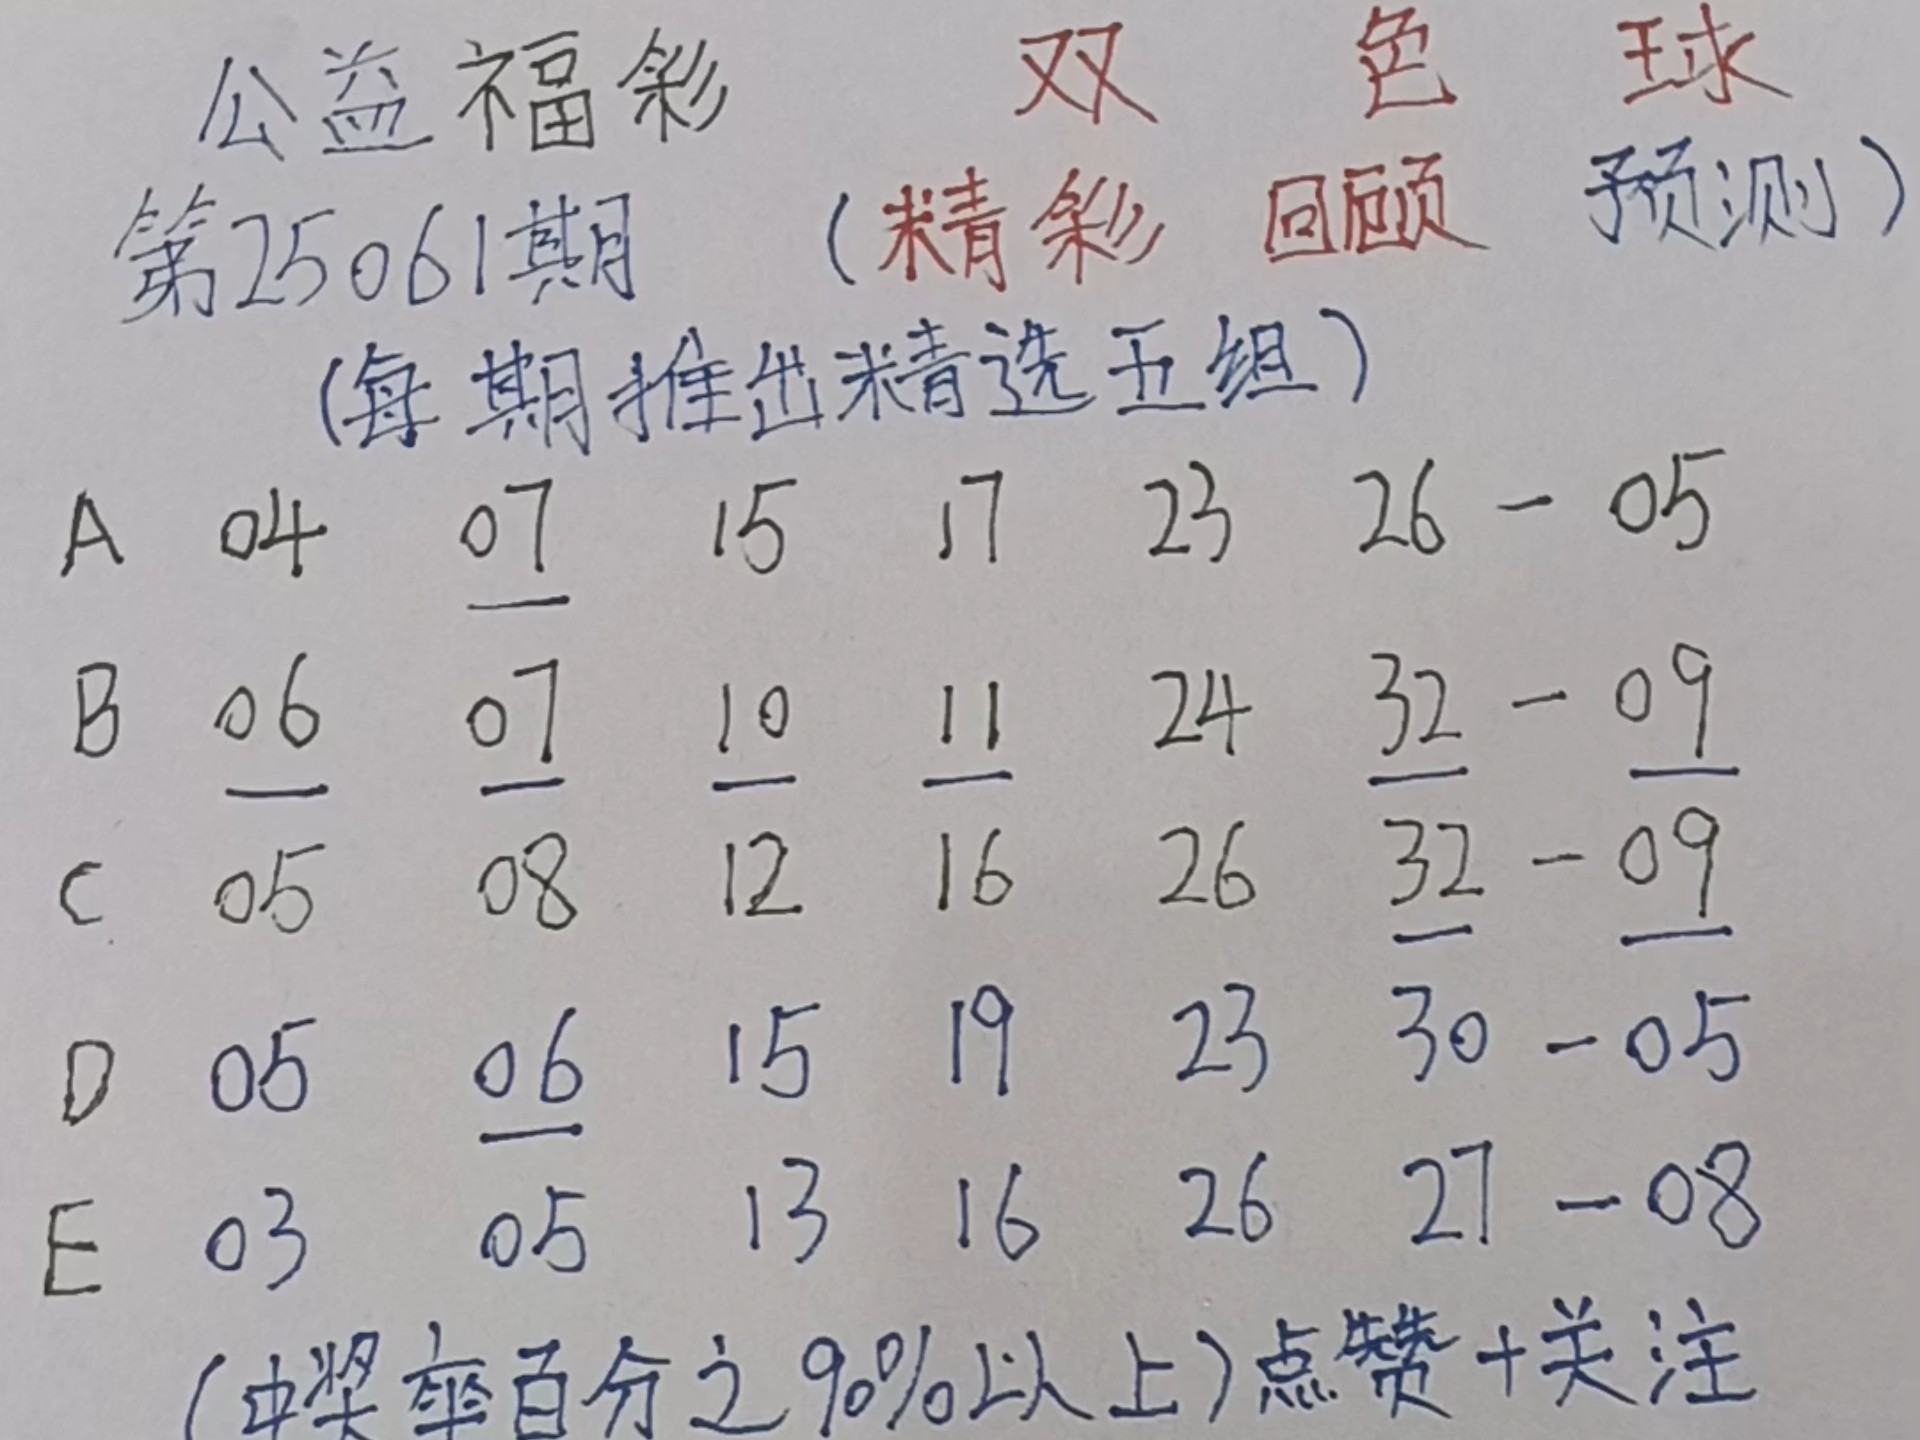 公益福彩 双色球
第25061期 (精彩回顾 预测)
(每期推出精选五组)
A 04 07 15 17 23 26 - 05
B 06 07 10 11 24 32 - 09
C 05 08 12 16 26 32 - 09
D 05 06 15 19 23 30 - 05
E 03 05 13 16 26 27 - 08
(中奖率百分之90%以上)点赞+关注